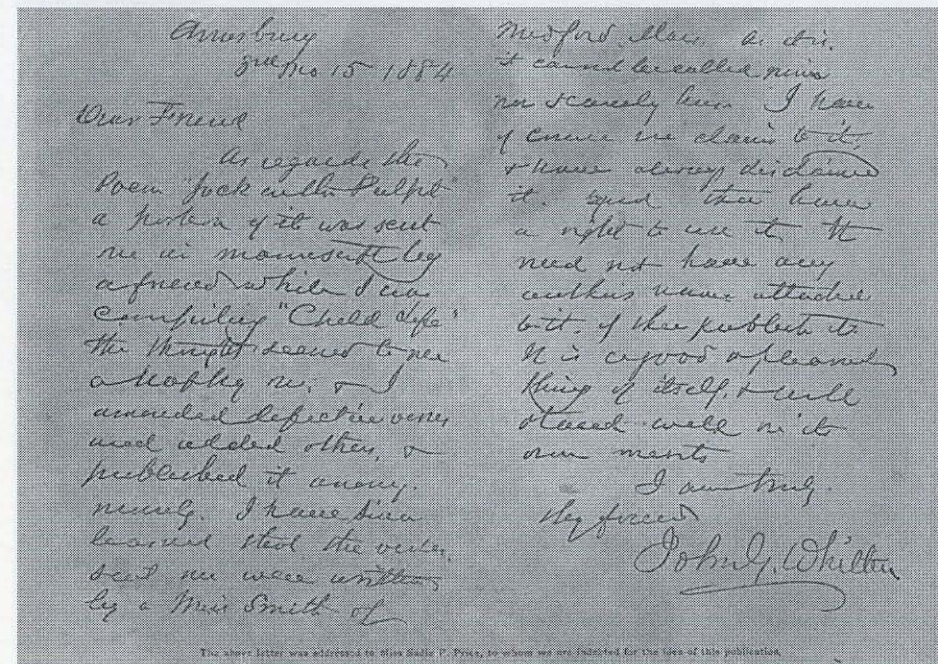 Amesbury
3rd Mo 15 1884
Dear Friend
As regards the
Poem "Jack in the Pulpit"
a portion of it was sent
me in manuscript by
a friend while I was
compiling "Child Life"
The thought seemed to me
a happy one, & I
amended defective verses
and added others, &
published it anony-
mously. I have since
learned that the verses
sent me were written
by a Miss Smith of
Medford, Mass. As it is,
it cannot be called mine
nor scarcely hers. I have
of course no claim to it,
& have always disclaimed
it. And thee have
a right to use it. It
need not have any
author's name attached
to it, if thee publish it.
It is a good & pleasant
thing of itself, & will
stand well on its
own merits
I am truly
thy friend
John G. Whittier
The above letter was addressed to Miss Sadie P. Price, to whom we are indebted for the idea of this publication.